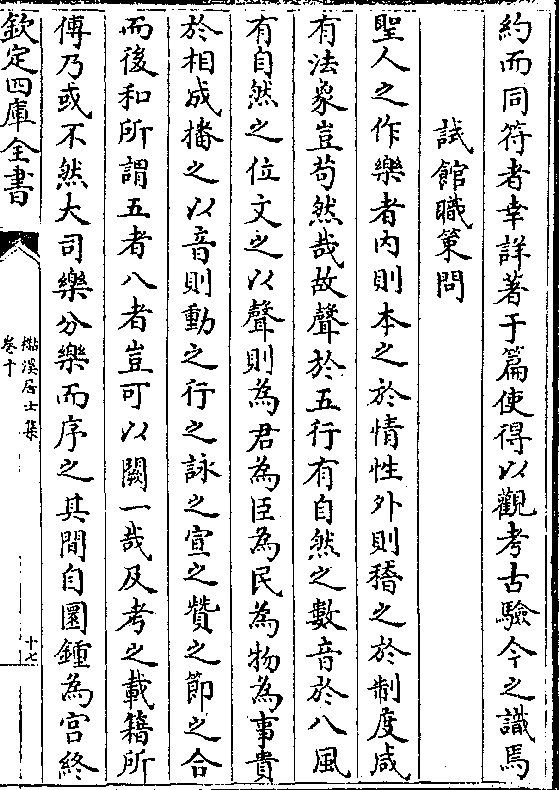 約而同符者幸詳著于篇使得以觀考古驗今之識焉
試館職策問
聖人之作樂者内則本之於情性外則稽之於制度咸
有法象豈苟然哉故聲於五行有自然之數音於八風
有自然之位文之以聲則為君為臣為民為物為事貴
於相成播之以音則動之行之詠之宣之贊之節之合
而後和所謂五者八者豈可以闕一哉及考之載籍所
傳乃或不然大司樂分樂而序之其間自圜鍾為宮終
欽定四庫全書
卷十
十七